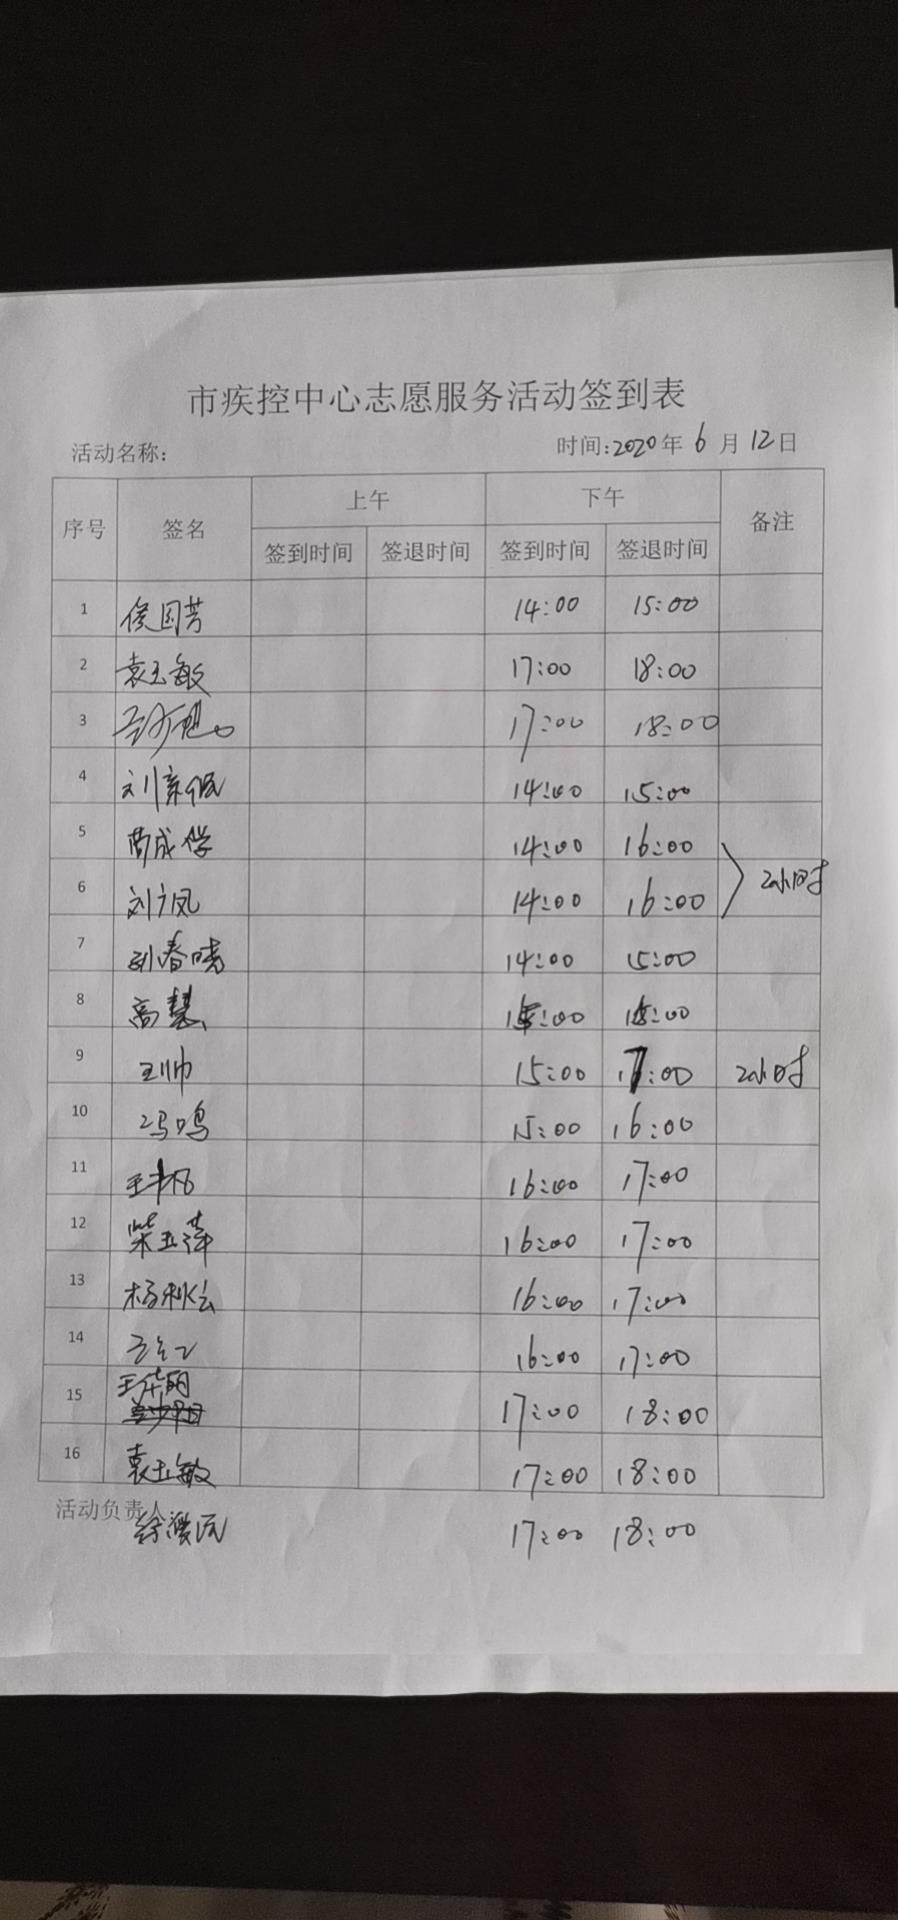 市疾控中心志愿服务活动签到表
活动名称: 时间:2020年6月12日
序号 签名 上午 下午 备注
签到时间 签退时间 签到时间 签退时间
1 侯国芳 14:00 15:00
2 袁玉敏 17:00 18:00
3 17:00 18:00
4 14:00 15:00
5 14:00 16:00
2小时
6 刘广凤 14:00 16:00
7 刘春晓 14:00 15:00
8 高慧
9 王帅 15:00 17:00 2小时
10 冯鸣 15:00 16:00
11 16:00 17:00
12 柴玉萍 16:00 17:00
13 杨秋会 16:00 17:00
14 16:00 17:00
15 王华丽 17:00 18:00
16 袁玉敏 17:00 18:00
活动负责人
17:00 18:00